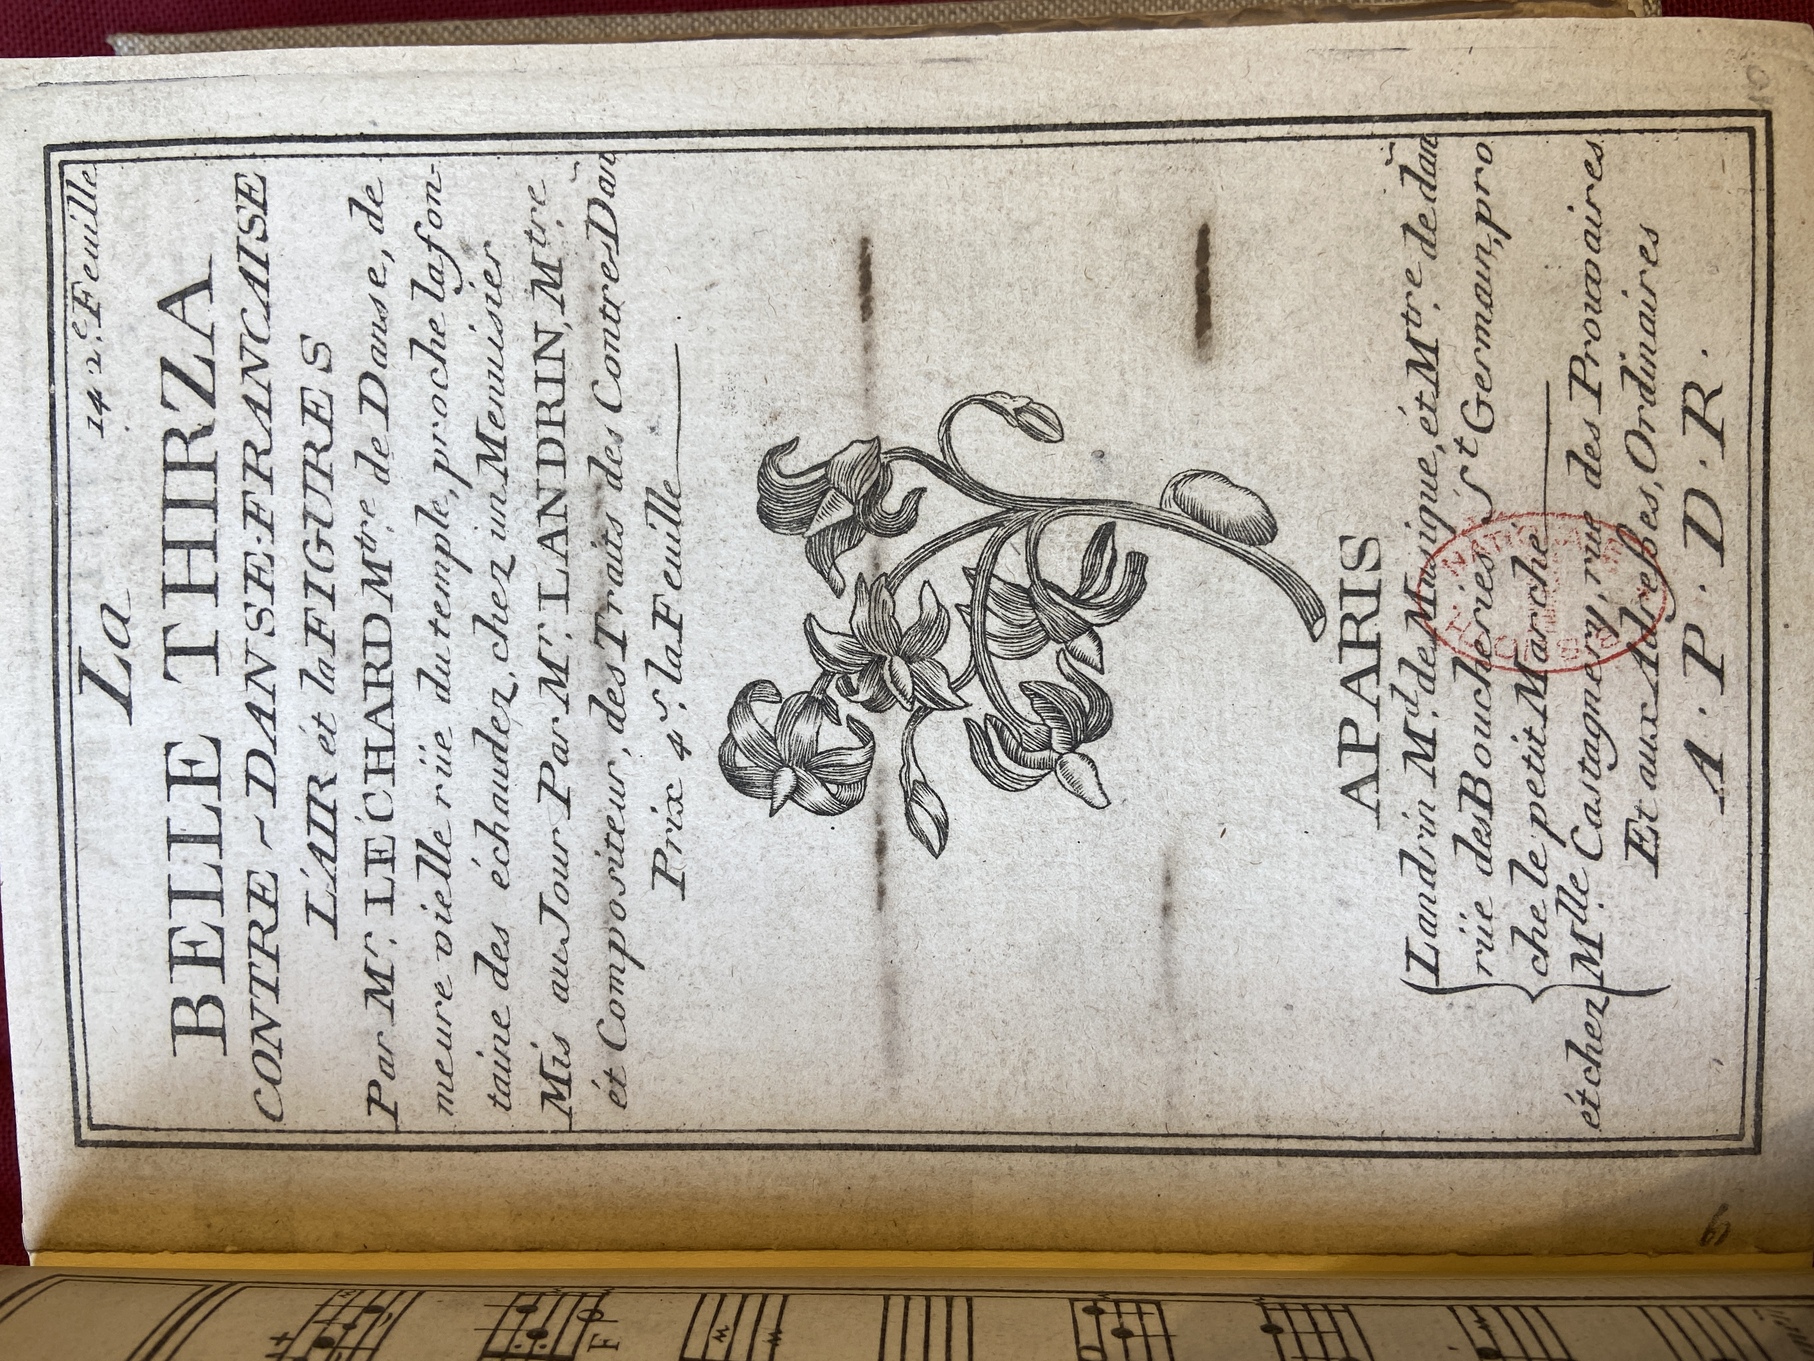 142.e Feuille
La
BELLE THIRZA
CONTRE-DANSE-FRANCAISE
L'AIR ét la FIGURES
Par Mr. LÉCHARD Mtre. de Danse, de
meure vielle rüe du temple, proche la fon-
taine des échaudez, chez un Menuisier
Mis au Jour Par Mr. LANDRIN, Mtre.
ét Compositeur, des Traits des Contres Dan
Prix 4 s. la Feuille
APARIS
Landrin Md. de Musique, ét Mtre. de dan
rüe des Boucheries St Germain, pro
che le petit Marche
ét chez Melle Castagnery, rue des Prouvaires
Et aux Adreßes, Ordinaires
A. P. D. R.
61
F